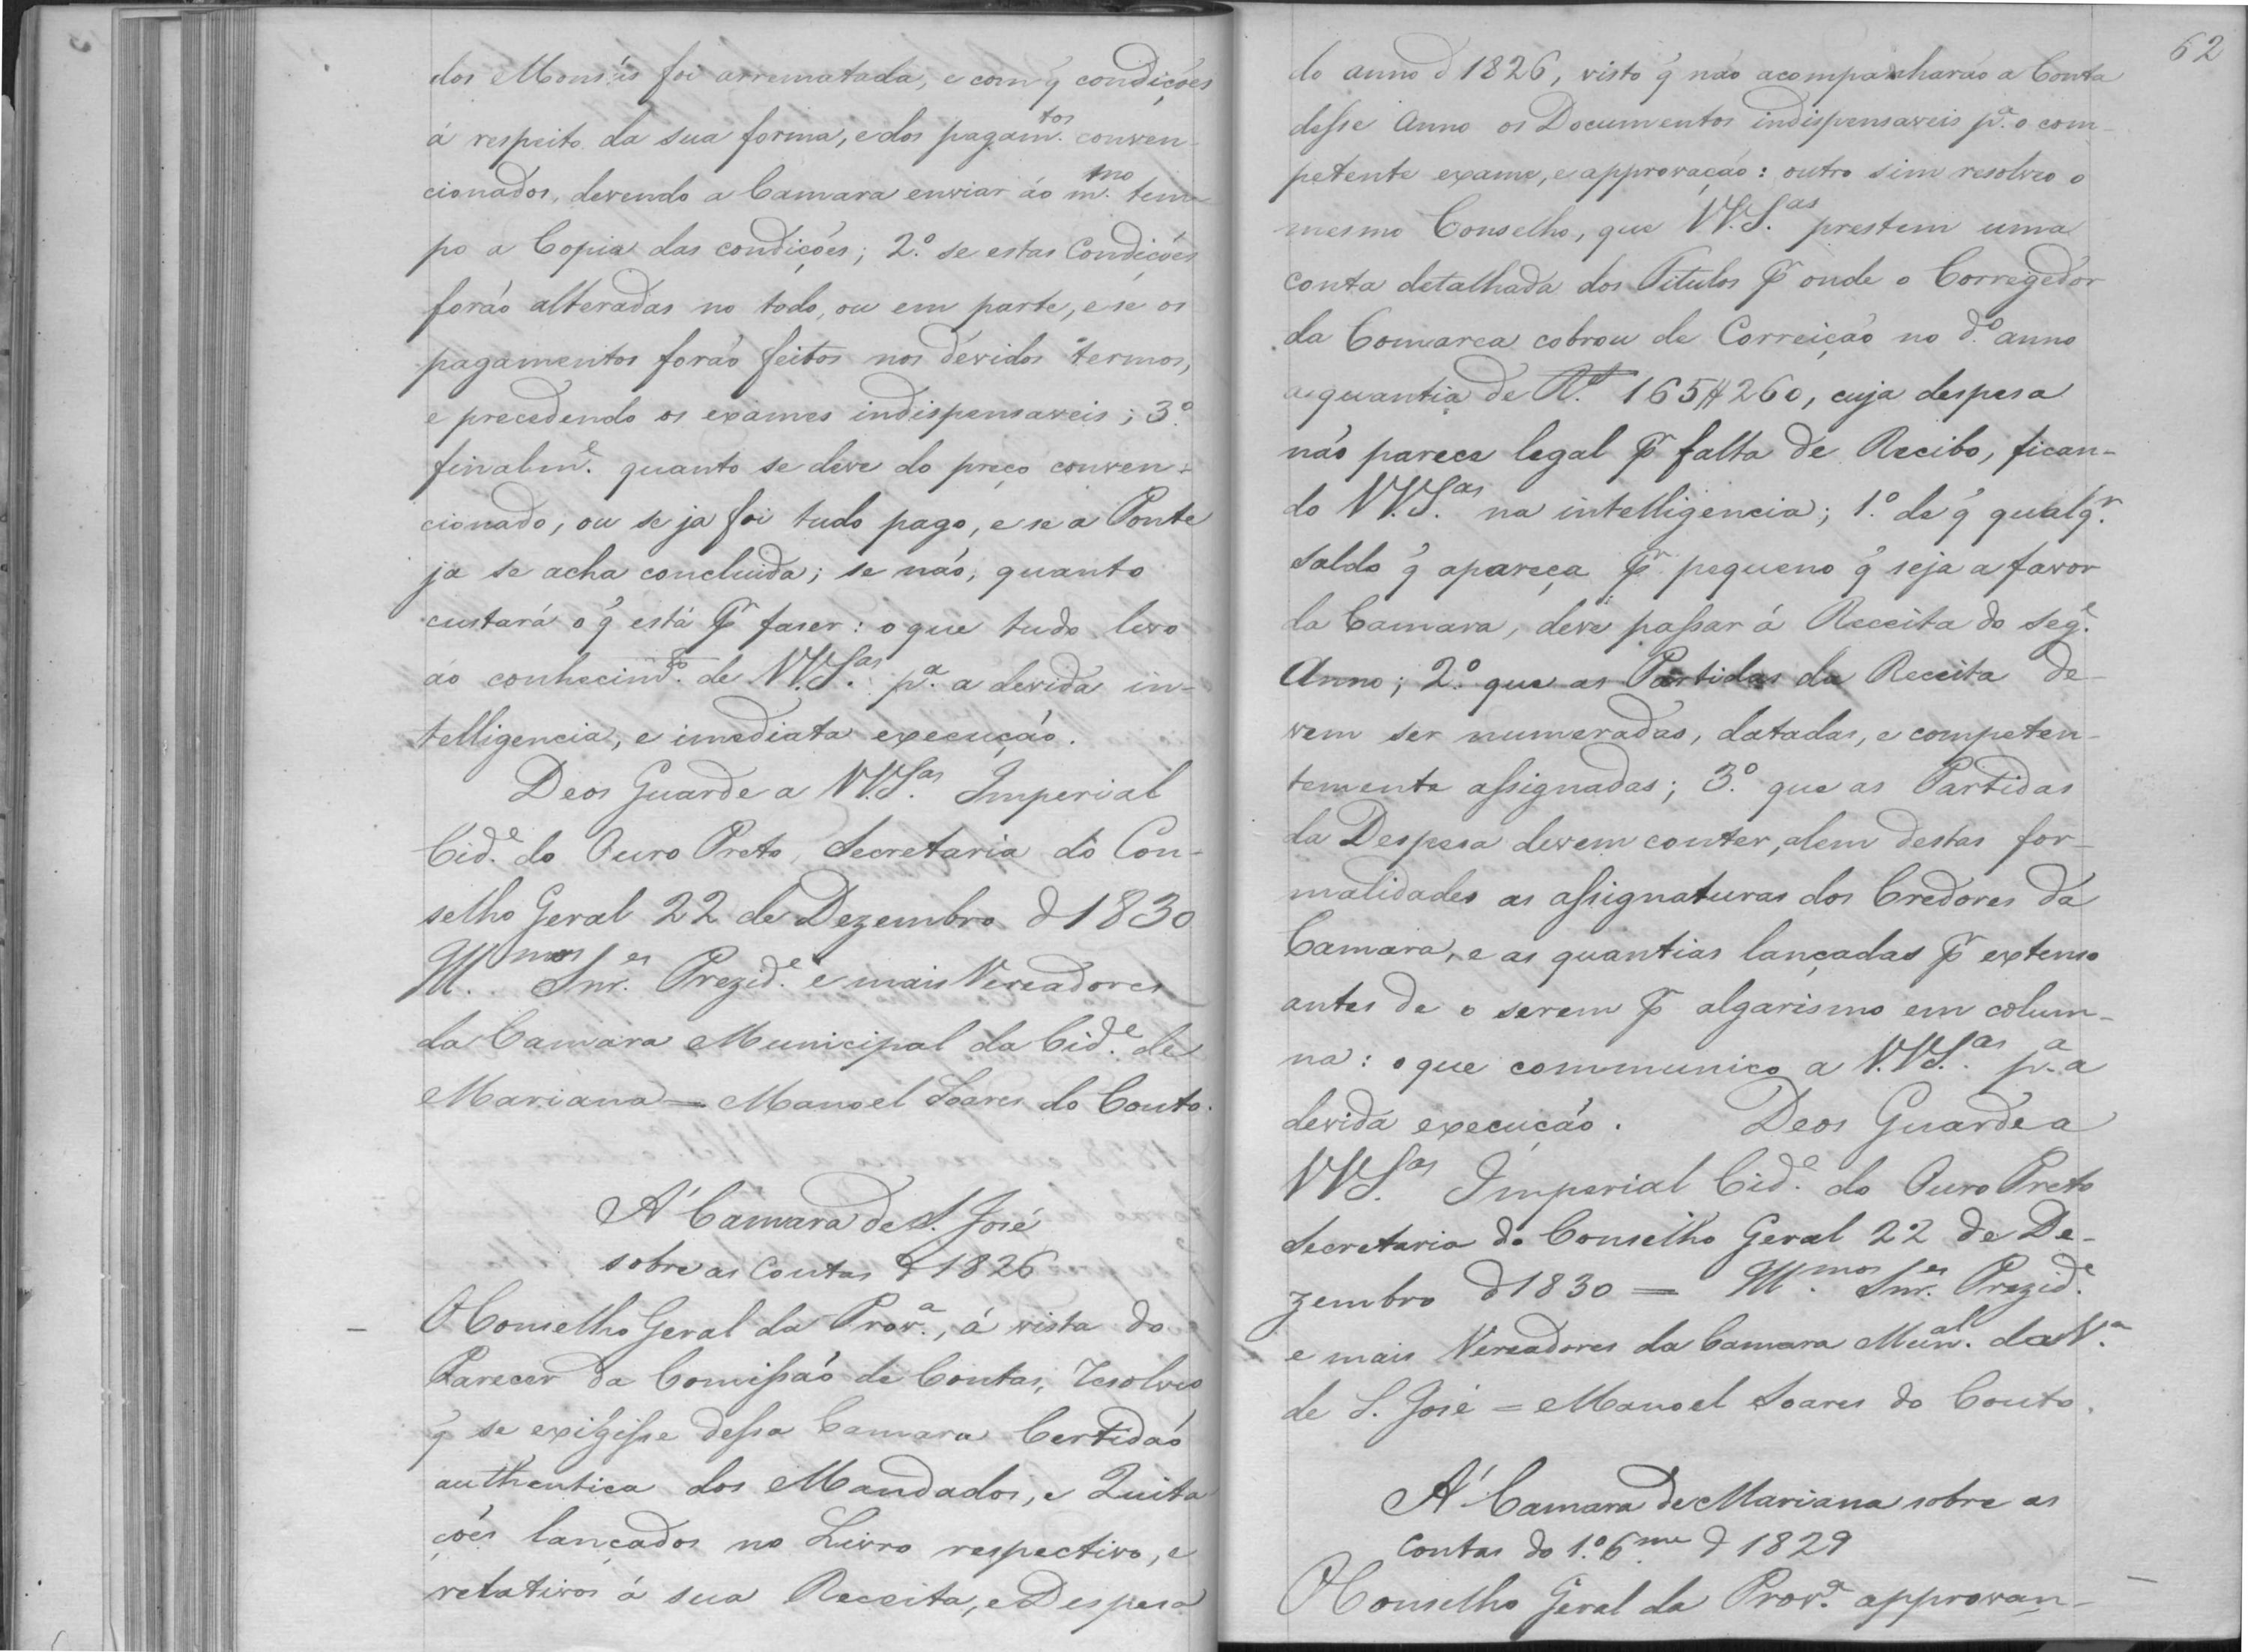 dos Monsús foi arrematada, e com q̃ condições
á respeito da sua forma, e dos pagam.tos conven-
cionados, devendo a Camara enviar áo m.mo tem-
po a Copia das condições; 2.º se estas Condições
foráo alteradas no todo, ou em parte, e se os
pagamentos foráo feitos nos dévidos termos,
e precedendo os exames indispensaveis; 3.º
finalm.e quanto se deve do preço conven-
cionado, ou se ja foi tudo pago, e se a Ponte
ja se acha concluida; se náo, quanto
custará o q̃ está p.r faser: o que tudo levo
áo conhecim.to de V.V.S.as p.a a devida in-
telligencia, e imediata execuçáo.
Deos Guarde a V.V.S.as Imperial
Cid.e do Ouro Preto, Secretaria do Con-
selho Geral 22 de Dezembro d 1830
Ill.mos Snr.es Prezid.e e mais Vereadores
da Camara Municipal da Cid.e de
Mariana = Manoel Soares do Couto.
A' Camara de S. José
sobre as Contas d 1826
O Conselho Geral da Prov.a, á vista do
Parecer da Comissáo de Contas, resolveo
q̃ se exigisse dessa Camara Certidáo
authentica dos Mandados, e Quita
ções lançados no Livro respectivo, e
relativos á sua Receita, e Despesa
62
do anno d 1826, visto q̃ náo acompanharáo a Conta
desse Anno os Documentos indispensaveis p.a o com-
petente exame, e approvaçáo: outro sim resolveo o
mesmo Conselho, que V.V.S.as prestem uma
conta detalhada dos Titulos p.r onde o Corregedor
da Comarca cobrou de Correiçáo no d.º anno
a quantia de R.s 165$260, cuja despesa
náo parece legal p.r falta de Recibo, fican-
do V.V.S.as na intelligencia; 1.º de q̃ qualq.r
saldo q̃ apareça p.r pequeno q̃ seja a favor
da Camara, deve passar á Receita do seg.e
Anno; 2.º que as Partidas da Receita de-
vem ser numeradas, datadas, e competen-
temente assignadas; 3.º que as Partidas
da Despesa devem conter, alem destas for-
malidades as assignaturas dos Credores da
Camara, e as quantias lançadas p.r extenso
antes de o serem p.r algarismo em colum-
na: o que communico a V.V.S.as p.a a
devida execuçáo. Deos Guarde a
V.V.S.as Imperial Cid.e do Ouro Preto
Secretaria do Conselho Geral 22 de De-
zembro d 1830 = Ill.mos Snr.es Prezid.e
e mais Vereadores da Camara Mun.al da V.a
de S. José = Manoel Soares do Couto.
A' Camara de Mariana sobre as
Contas do 1.º 6.me d 1829
O Conselho Geral da Prov.a approvan-